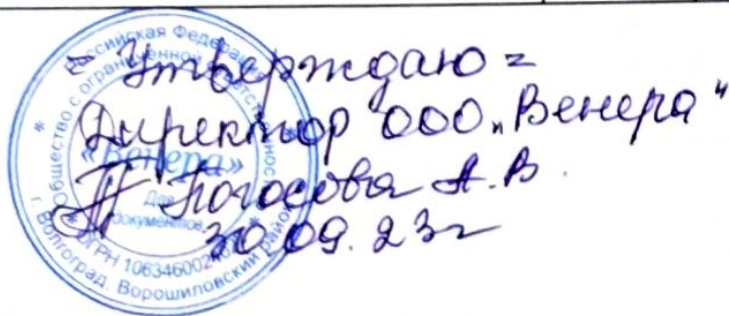 = Утверждаю =
Директор ООО „Венера"
Погосова А.В.
30.09.23г
Российская Федерация
Общество с ограниченной ответственностью
«Венера»
Для
документов
г. Волгоград, Ворошиловский район
ОГРН